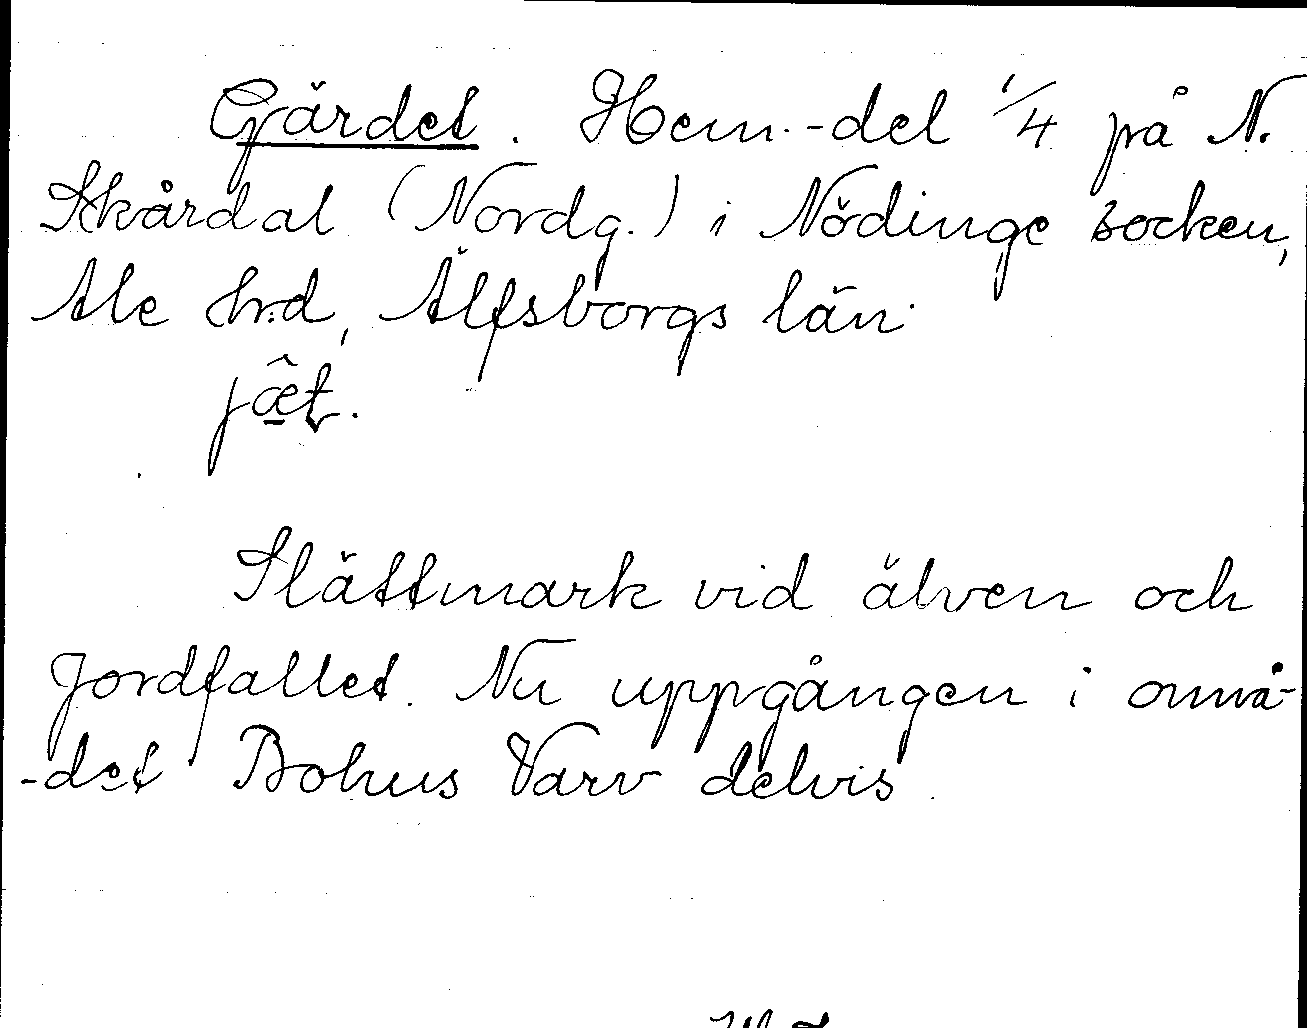 Gärdet. Hem.-del 1/4 på N.
Skårdal (Nordg.) i Nödinge socken,
Ale hrd, Älfsborgs län.
jæ̂t.
Slättmark vid älven och
Jordfallet. Nu uppgången i områ-
-det Bohus Varv delvis.